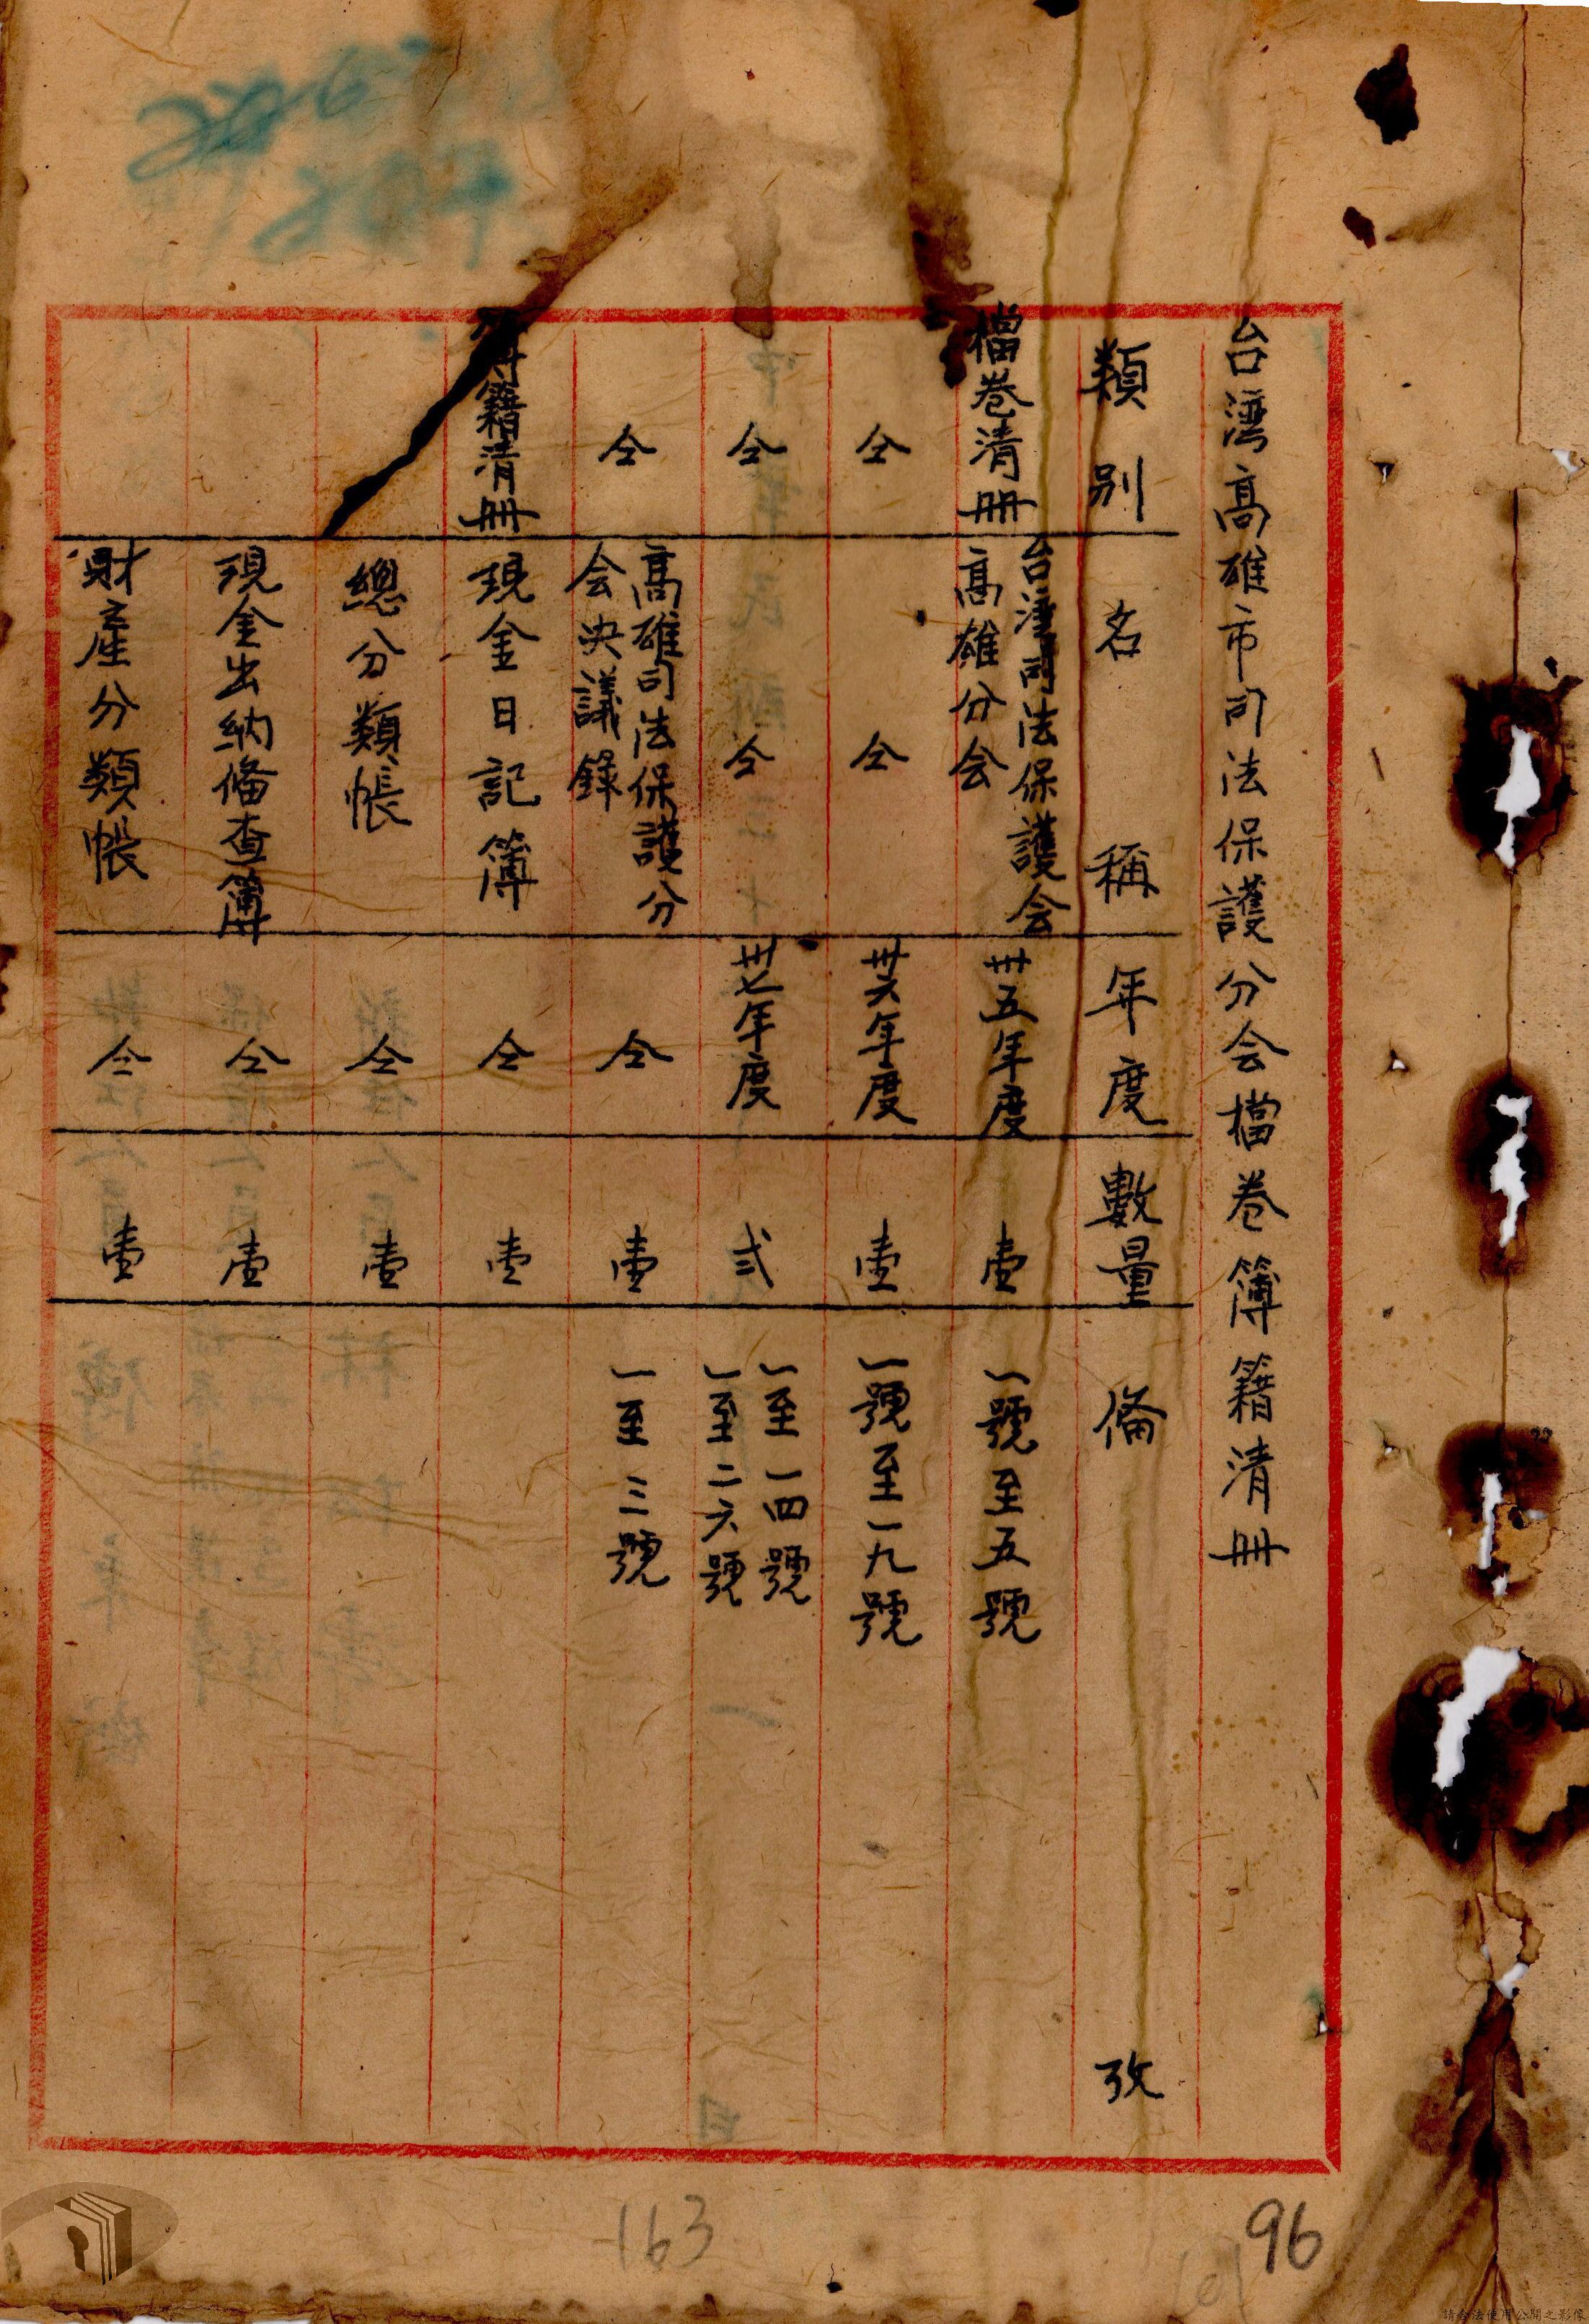 台湾高雄市司法保護分会檔卷簿籍清冊
類別 名稱 年度 數量 俻 攷
檔卷清冊 台湾司法保護会高雄分会 卅五年度 壹 一號至五號
仝 仝 卅六年度 壹 一號至一九號
仝 仝 卅七年度 弍 一至一四號 一至二六號
仝 高雄司法保護分会決議錄 仝 壹 一至三號
簿籍清冊 現金日記簿 仝 壹
總分類帳 仝 壹
現金出納俻查簿 仝 壹
財產分類帳 仝 壹
163
96
請合法使用公開之影像